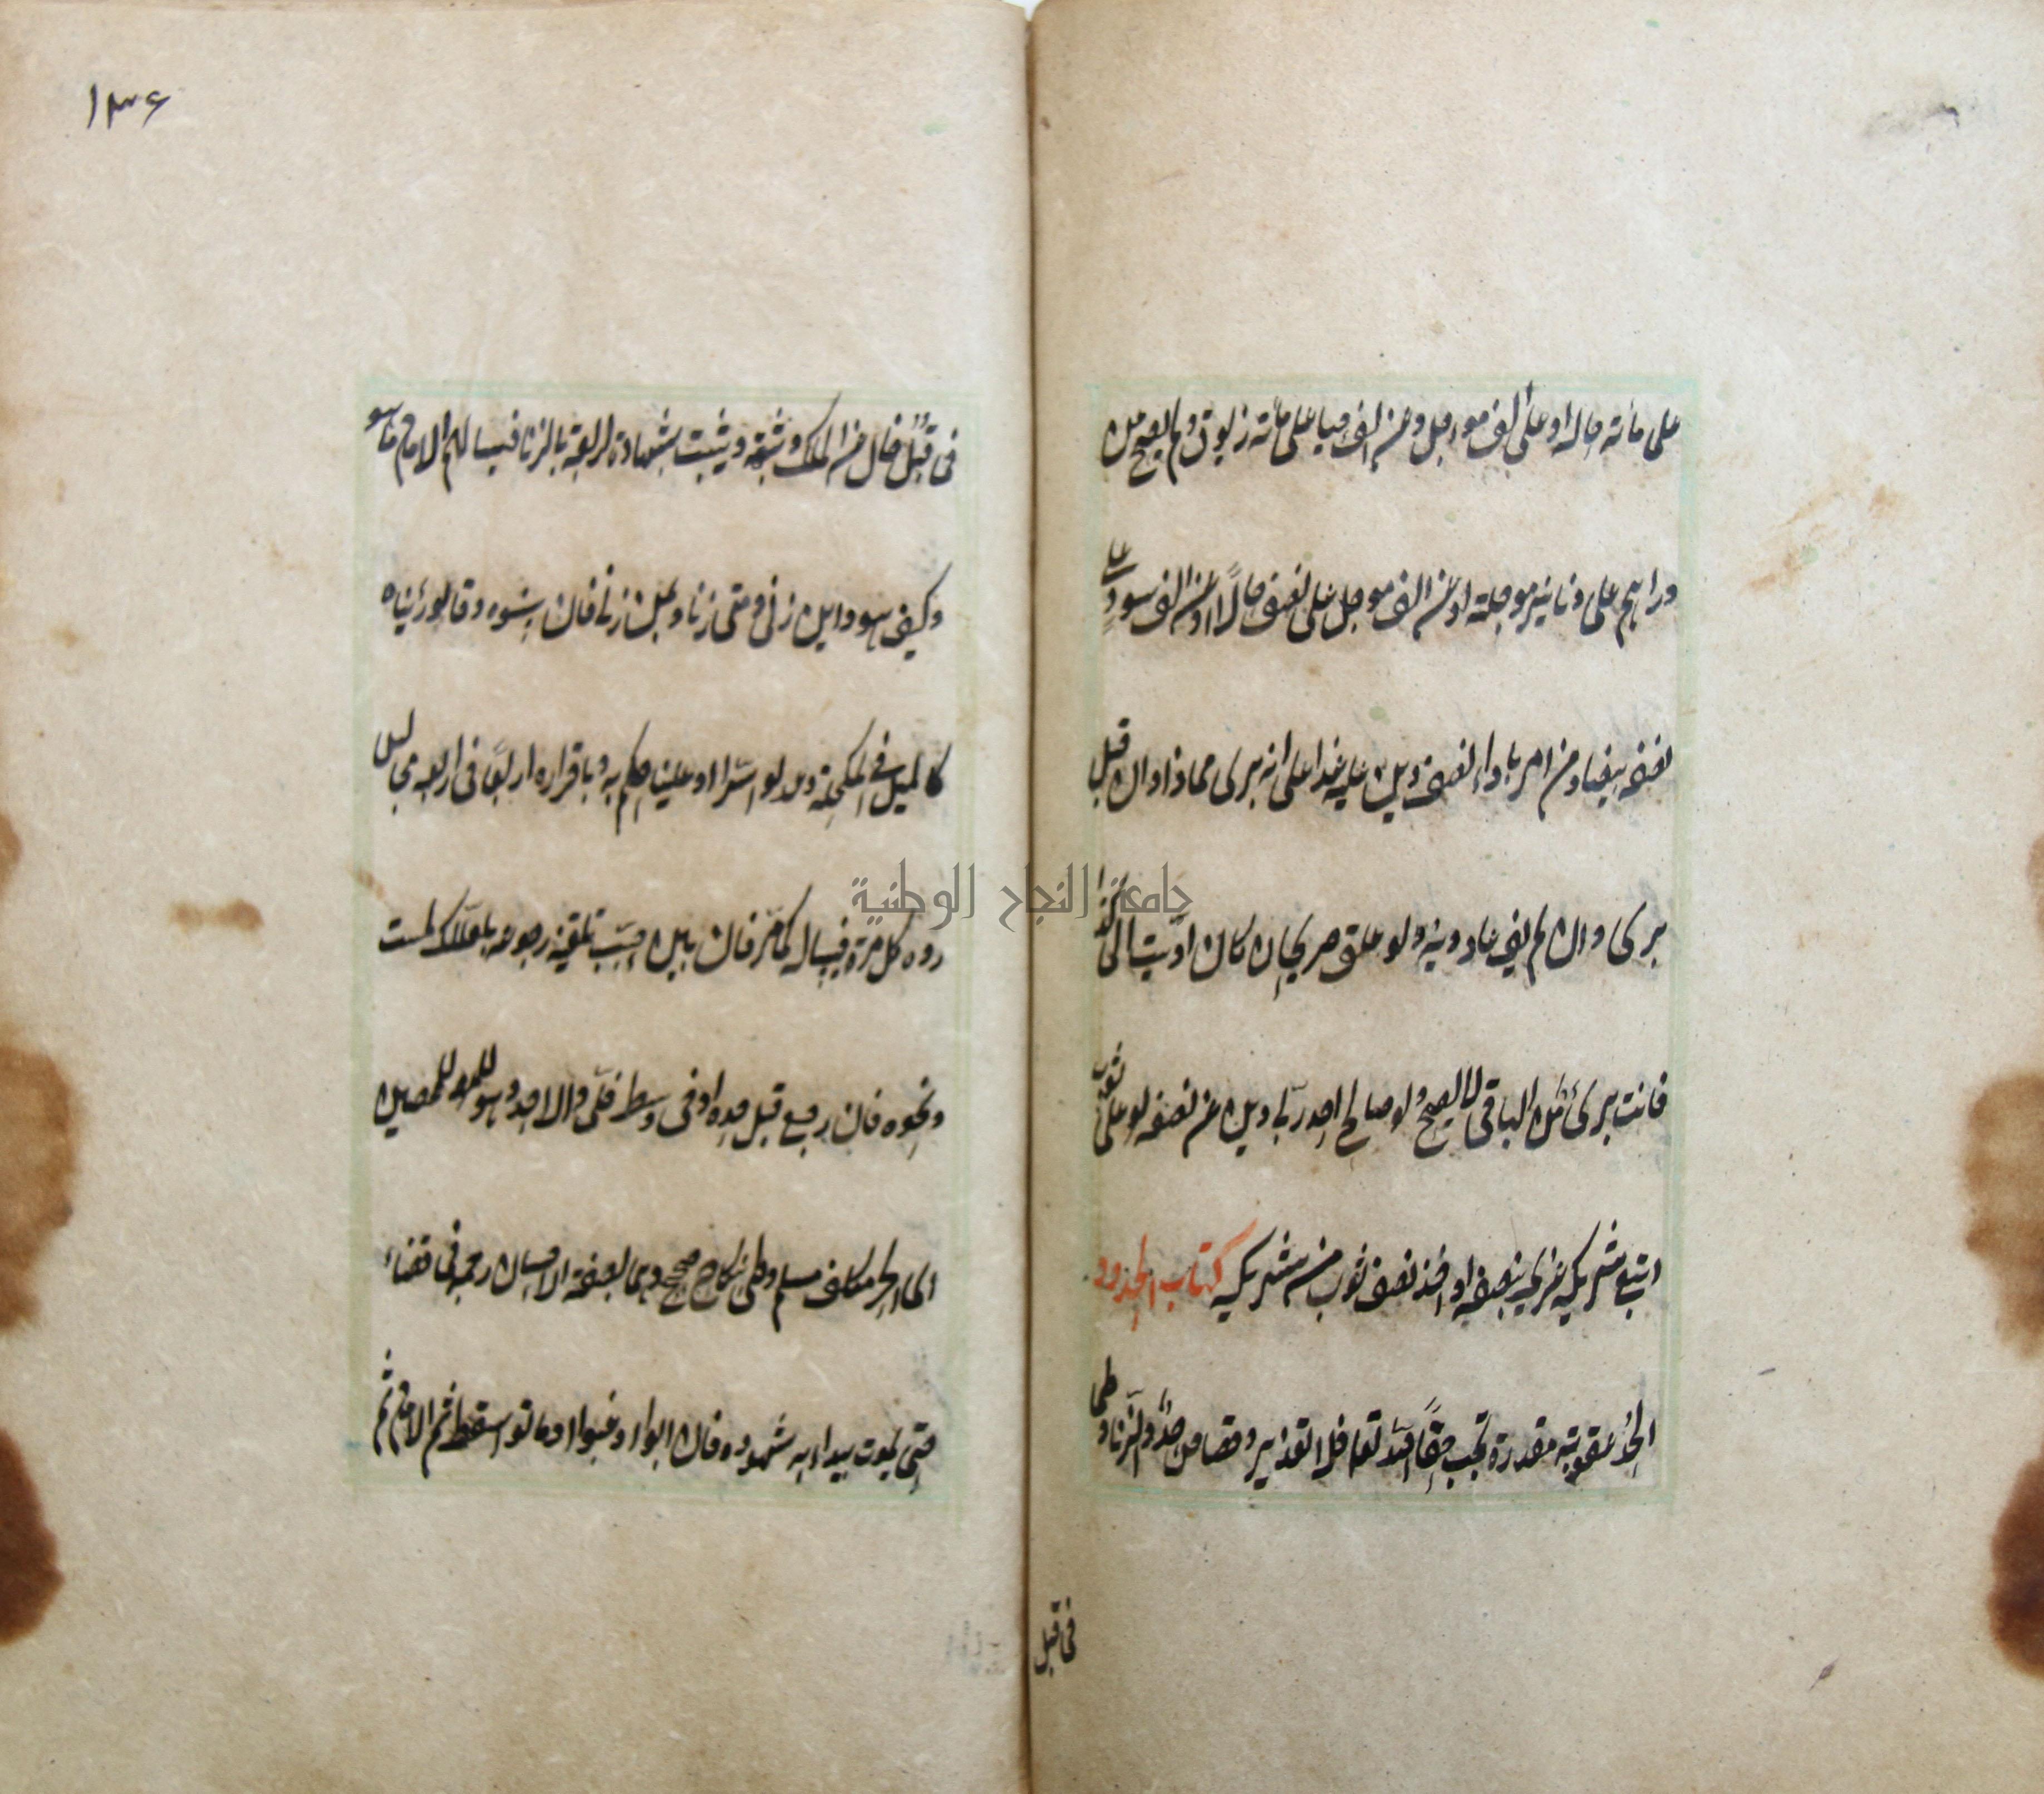 على مائة حالة او على الف موءجل وعن الف جياد على مائة زيوف ولم يصح من
دراهم على دنانير موجلة او عن الف موجل على نصف حالًا او عن الف سود على
نصفه بيضا ومن امر باداء نصف دين عليه غدا على انه برى مما زاد ان قبل
برى وان لم يف عاد دينه ولو علق صريحا ان كان اديت الى كذا
فانت برى من الباقى لا يصح ولو صالح احد ربى دين عن نصفه لو على ثوب
اتبع شريكه غريمه بنصفه او اخذ نصف ثوب من شريكه كتاب الحدود
الحد عقوبة مقدرة تجب حقًا لله تعا فلا تعذير وقصاص حدٌ والزنا وطى
فى قبل
١٣٤
فى قُبُل خال من الملك وشبهة ويثبت بشهادة اربعة بالزنا فيسالهم الامام ما هو
وكيف هو واين زنى ومتى زنا وبمن زنى فان بينوه وقالو رئيناه
كالميل فى المكحلة وعدلو سرا او علينا حكم به وباقراره اربعًا فى اربعه مجالس
رده كل مرة فيساله كما مر فان بين حسب تلقينه رجوعه بلعلك لمست
ونحوه فان رجع قبل حده او فى وسطه خلى والا حد وهو للمحصن
اى الحر مكلف مسلم وطى بنكاح صحيح وهما بصفة الاحسان رجمه فى فضاء
حتى يموت يبداء به شهوده فان ابوا او غيبوا او ماتو سقط ثم الامام ثم
جامعة النجاح الوطنية